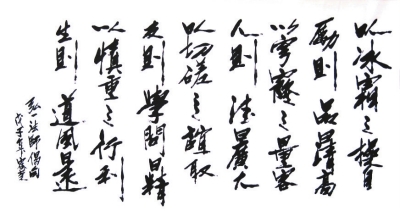 以冰霜之操自
勵則品日清高
以穹窿之量容
人則德日廣大
以切磋之誼取
友則學問日精
以慎重之行利
生則道風日遠
弘一法師偈句
戊子年